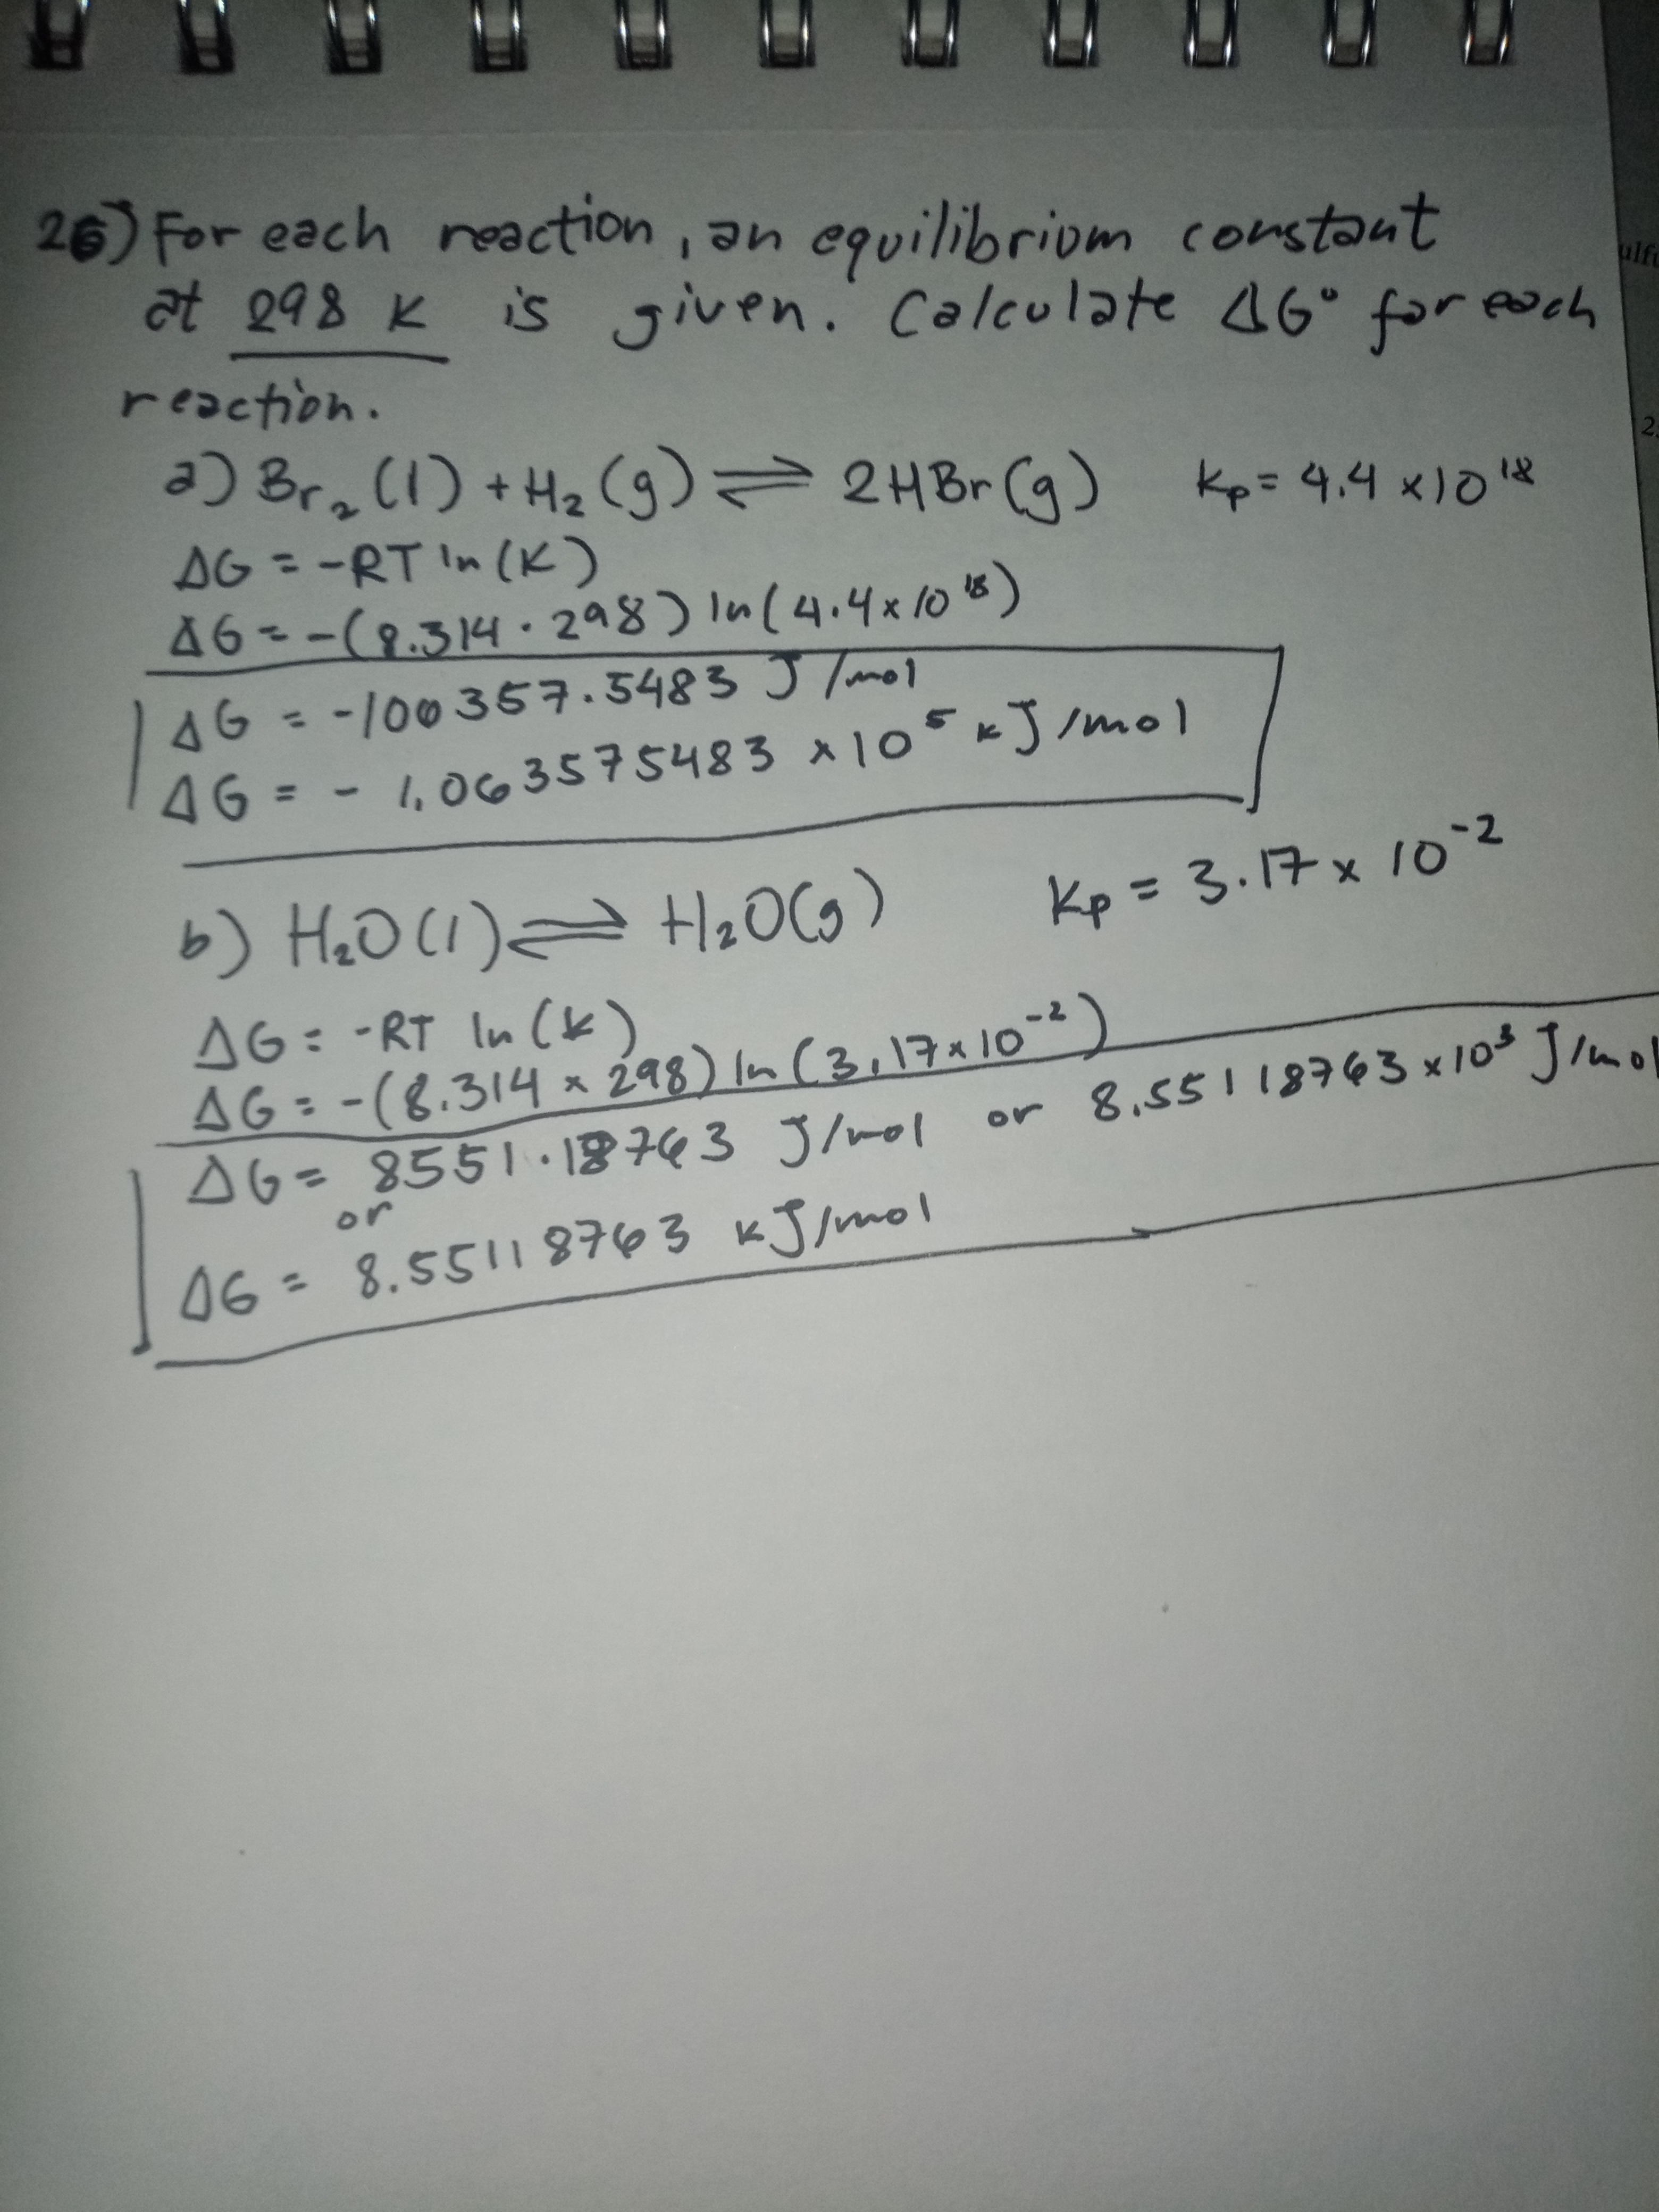 26) For each reaction, an equilibrium constant
at 298 K is given. Calculate ΔG° for each
reaction.
a) Br₂ (l) + H₂ (g) ⇌ 2HBr (g) Kp = 4.4 x10¹⁸
ΔG = -RT ln (K)
ΔG = -(8.314 · 298) ln (4.4 x 10¹⁸)
ΔG = -106357.5483 J/mol
ΔG = - 1.063575483 x10⁵ kJ/mol
b) H₂O (l) ⇌ H₂O(g) Kp = 3.17 x 10⁻²
ΔG = -RT ln (K)
ΔG = -(8.314 x 298) ln (3.17 x 10⁻²)
ΔG = 8551.18763 J/mol or 8.55118763 x10³ J/mol
or
ΔG = 8.55118763 kJ/mol
2